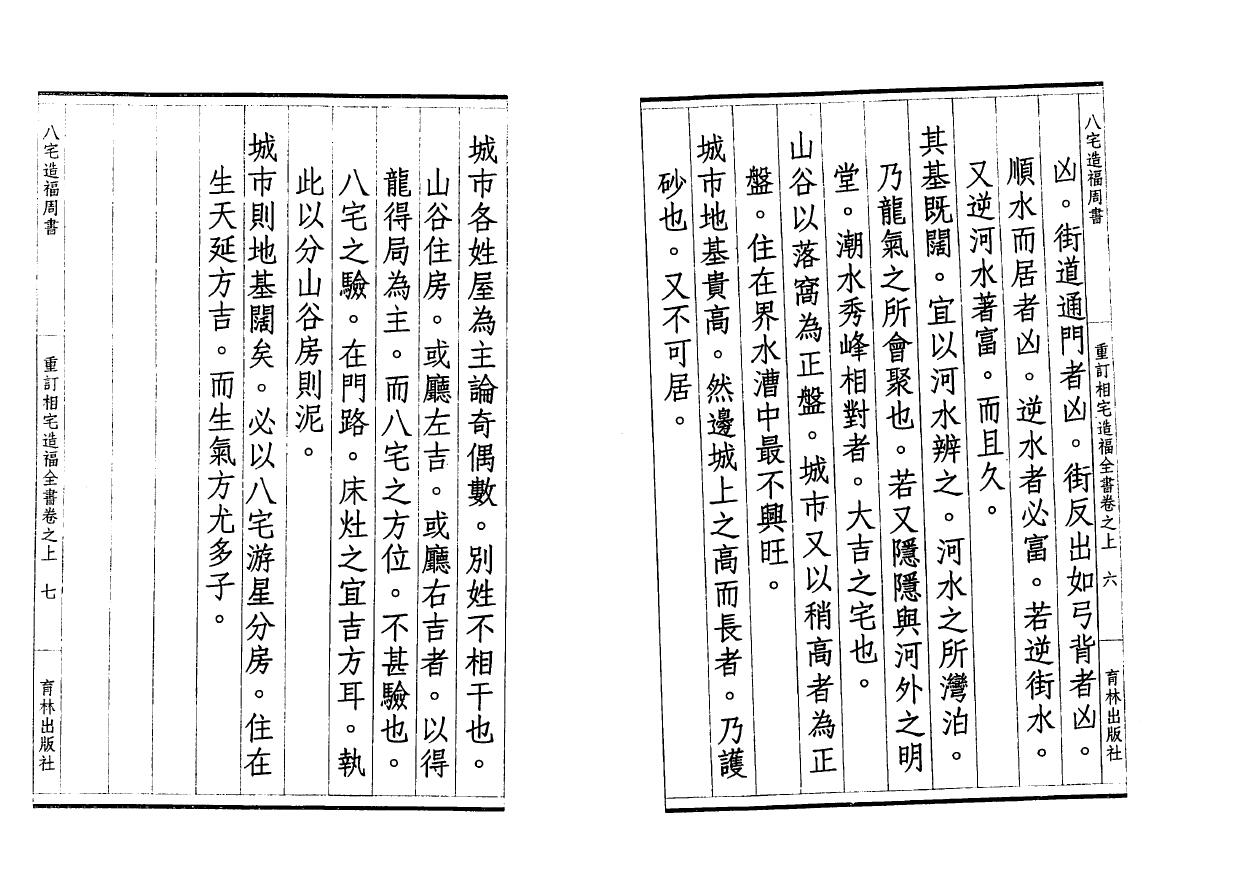 八宅造福周書
重訂相宅造福全書卷之上 六
育林出版社
凶。街道通門者凶。街反出如弓背者凶。
順水而居者凶。逆水者必富。若逆街水。
又逆河水著富。而且久。
其基既闊。宜以河水辨之。河水之所灣泊。
乃龍氣之所會聚也。若又隱隱與河外之明
堂。潮水秀峰相對者。大吉之宅也。
山谷以落窩為正盤。城市又以稍高者為正
盤。住在界水漕中最不興旺。
城市地基貴高。然邊城上之高而長者。乃護
砂也。又不可居。
城市各姓屋為主論奇偶數。別姓不相干也。
山谷住房。或廳左吉。或廳右吉者。以得
龍得局為主。而八宅之方位。不甚驗也。
八宅之驗。在門路。床灶之宜吉方耳。執
此以分山谷房則泥。
城市則地基闊矣。必以八宅游星分房。住在
生天延方吉。而生氣方尤多子。
八宅造福周書
重訂相宅造福全書卷之上 七
育林出版社